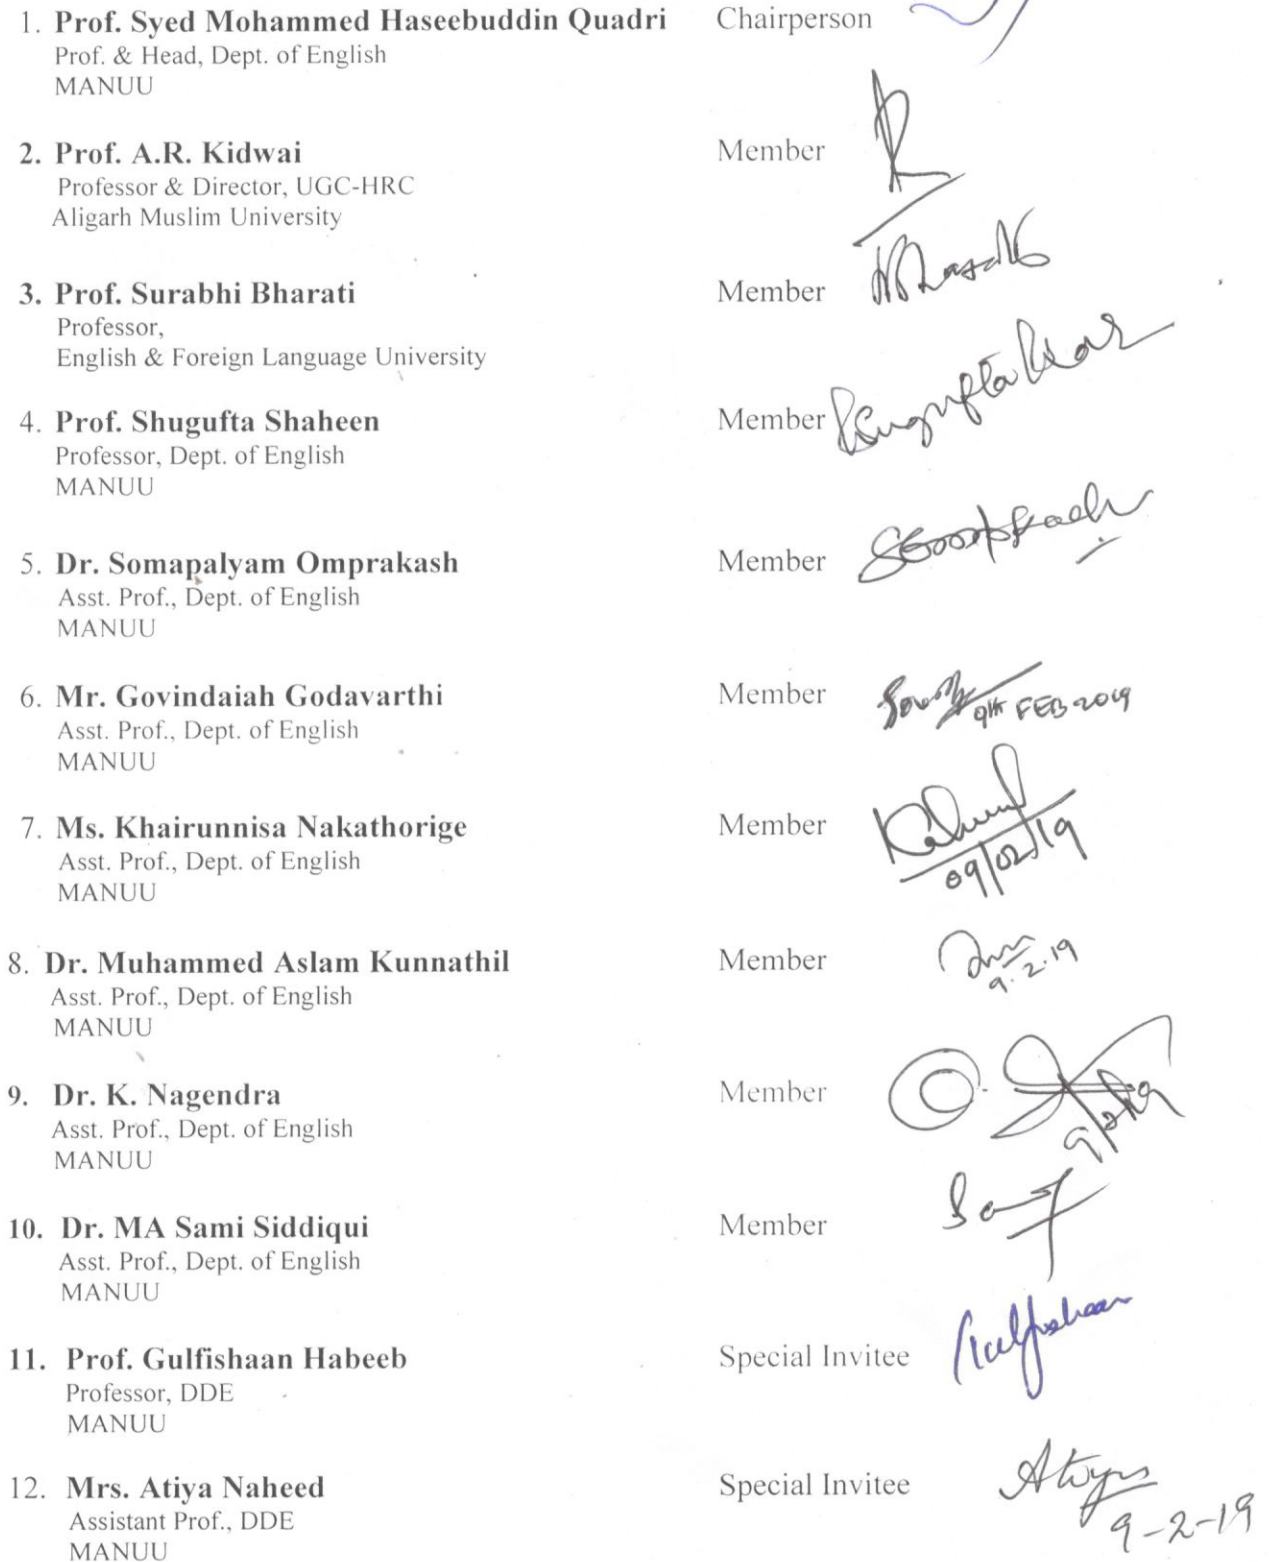 1. Prof. Syed Mohammed Haseebuddin Quadri Chairperson
Prof. & Head, Dept. of English
MANUU
2. Prof. A.R. Kidwai Member
Professor & Director, UGC-HRC
Aligarh Muslim University
3. Prof. Surabhi Bharati Member
Professor,
English & Foreign Language University
4. Prof. Shugufta Shaheen Member
Professor, Dept. of English
MANUU
5. Dr. Somapalyam Omprakash Member
Asst. Prof., Dept. of English
MANUU
6. Mr. Govindaiah Godavarthi Member
9th FEB 2019
Asst. Prof., Dept. of English
MANUU
7. Ms. Khairunnisa Nakathorige Member
Asst. Prof., Dept. of English
09/02/19
MANUU
8. Dr. Muhammed Aslam Kunnathil Member
9.2.19
Asst. Prof., Dept. of English
MANUU
9. Dr. K. Nagendra Member
Asst. Prof., Dept. of English
MANUU
10. Dr. MA Sami Siddiqui Member
Asst. Prof., Dept. of English
MANUU
11. Prof. Gulfishaan Habeeb Special Invitee
Professor, DDE
MANUU
12. Mrs. Atiya Naheed Special Invitee
Assistant Prof., DDE
9-2-19
MANUU